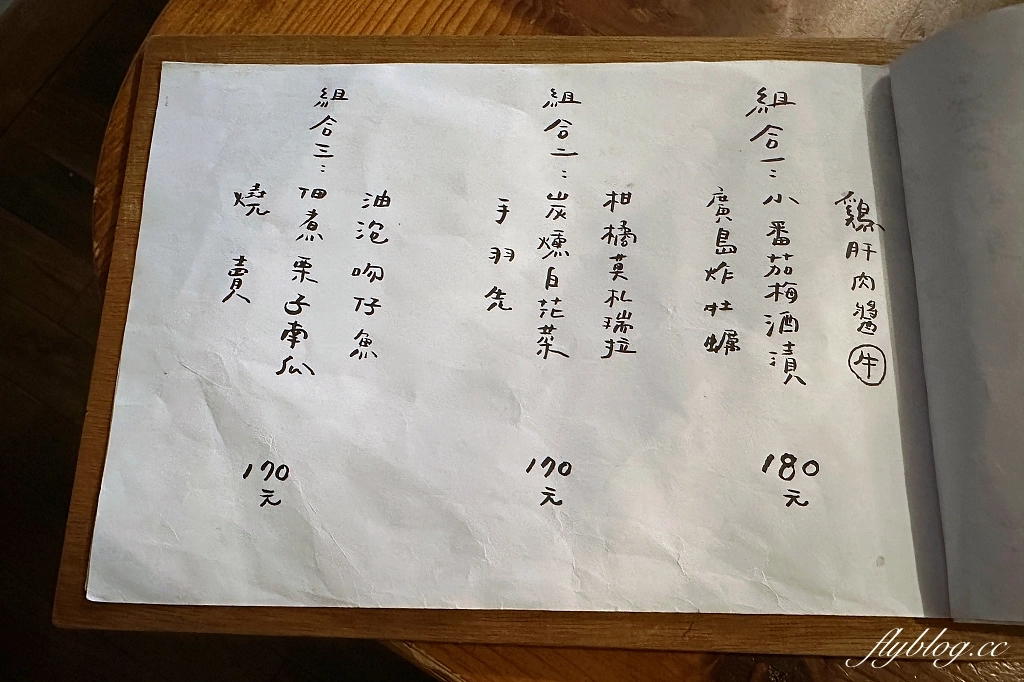 鷄肝肉醬 牛
組合一：小番茄梅酒漬
廣島炸牡蠣
180元
柑橘莫札瑞拉
組合二：炭燻白花菜
手羽先
170元
油泡吻仔魚
組合三：佃煮栗子南瓜
燒賣
170元
flyblog.cc